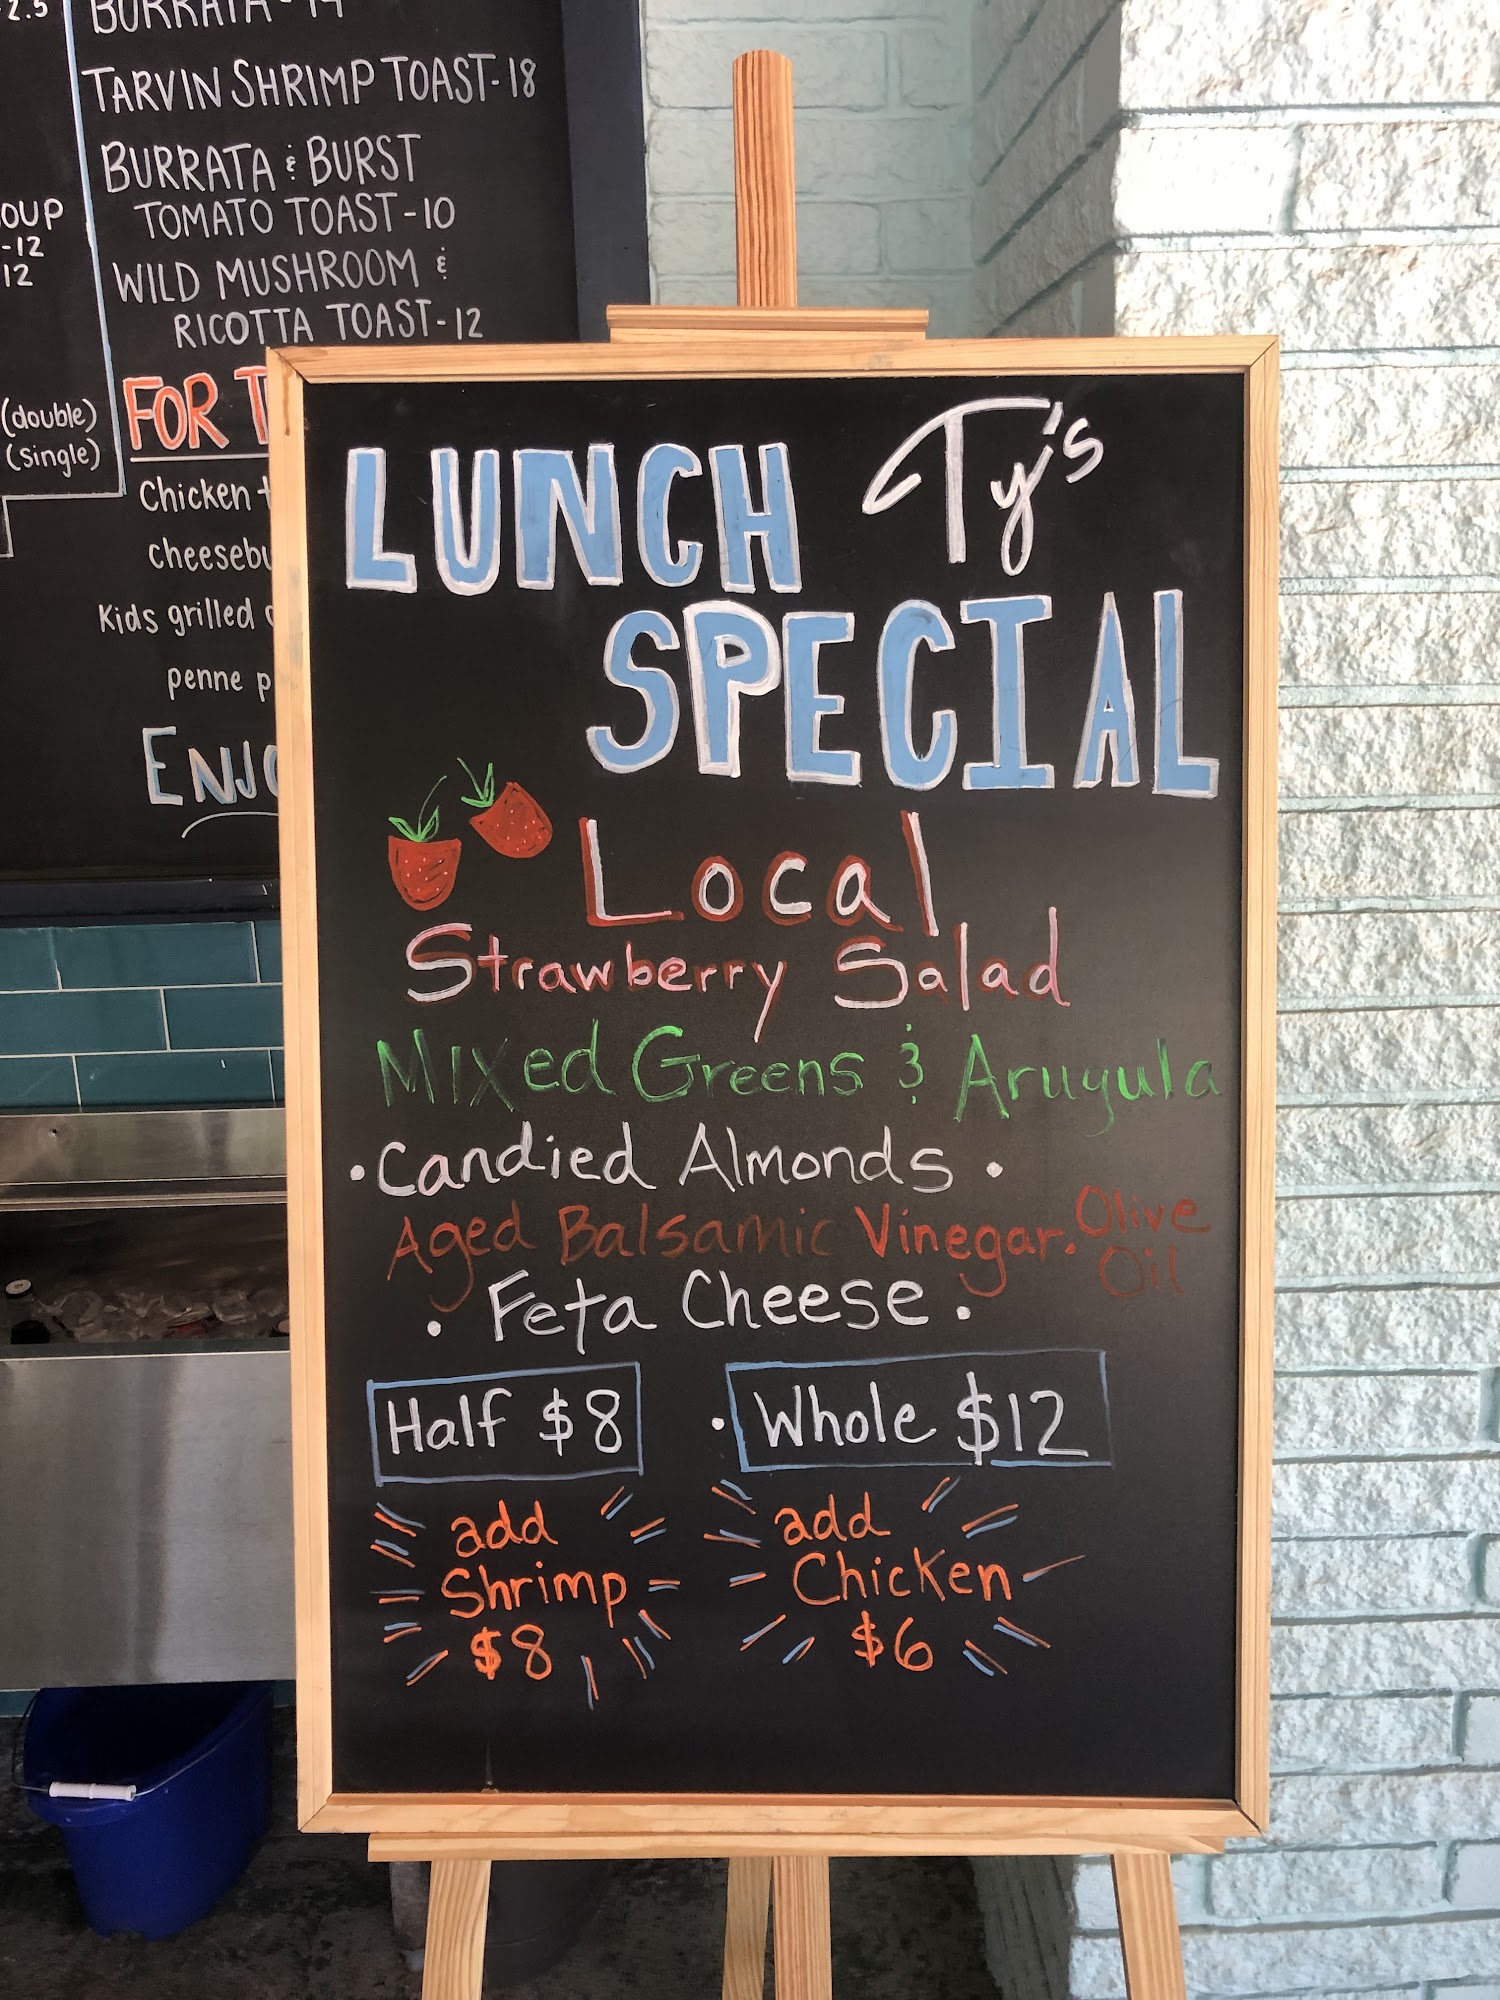 2.5
BURRATA - 14
TARVIN SHRIMP TOAST - 18
BURRATA & BURST
TOMATO TOAST - 10
WILD MUSHROOM &
RICOTTA TOAST - 12
OUP
-12
12
(double)
(single)
FOR T
Chicken t
cheesebu
Kids grilled c
penne p
ENJO
LUNCH Ty's
SPECIAL
Local
Strawberry Salad
Mixed Greens & Arugula
• Candied Almonds •
Aged Balsamic Vinegar • Olive
Oil
• Feta Cheese •
Half $8 • Whole $12
add
Shrimp
$8
add
Chicken
$6